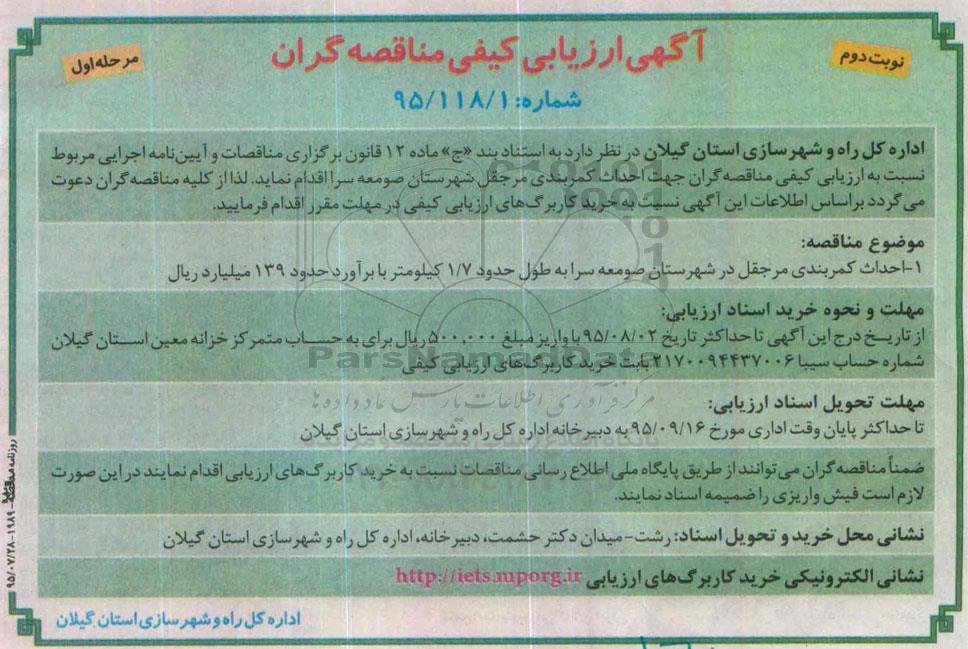 نوبت دوم
آگهی ارزیابی کیفی مناقصه گران
مرحله اول
شماره: ۹۵/۱۱۸/۱
اداره کل راه و شهرسازی استان گیلان در نظر دارد به استناد بند «ج» ماده ۱۲ قانون برگزاری مناقصات و آیین‌نامه اجرایی مربوط
نسبت به ارزیابی کیفی مناقصه‌گران جهت احداث کمربندی مرجقل شهرستان صومعه سرا اقدام نماید. لذا از کلیه مناقصه‌گران دعوت
می‌گردد براساس اطلاعات این آگهی نسبت به خرید کاربرگ‌های ارزیابی کیفی در مهلت مقرر اقدام فرمایید.
موضوع مناقصه:
۱-احداث کمربندی مرجقل در شهرستان صومعه سرا به طول حدود ۱/۷ کیلومتر با برآورد حدود ۱۳۹ میلیارد ریال
مهلت و نحوه خرید اسناد ارزیابی:
از تاریخ درج این آگهی تا حداکثر تاریخ ۹۵/۰۸/۰۲ با واریز مبلغ ۵۰۰,۰۰۰ ریال برای به حساب متمرکز خزانه معین استان گیلان
شماره حساب سیبا ۲۱۷۰۰۹۴۴۳۷۰۰۶ بابت خرید کاربرگ‌های ارزیابی کیفی
ParsNamadData
مرکز فرآوری اطلاعات پارس نماد داده ها
مهلت تحویل اسناد ارزیابی:
تا حداکثر پایان وقت اداری مورخ ۹۵/۰۹/۱۶ به دبیرخانه اداره کل راه و شهرسازی استان گیلان
ضمناً مناقصه‌گران می‌توانند از طریق پایگاه ملی اطلاع رسانی مناقصات نسبت به خرید کاربرگ‌های ارزیابی اقدام نمایند در این صورت
لازم است فیش واریزی را ضمیمه اسناد نمایند.
نشانی محل خرید و تحویل اسناد: رشت-میدان دکتر حشمت، دبیرخانه، اداره کل راه و شهرسازی استان گیلان
نشانی الکترونیکی خرید کاربرگ‌های ارزیابی http://iets.mporg.ir
اداره کل راه و شهرسازی استان گیلان
روزنامه مناقصه-۱۹۸۹-۹۵/۰۷/۲۸